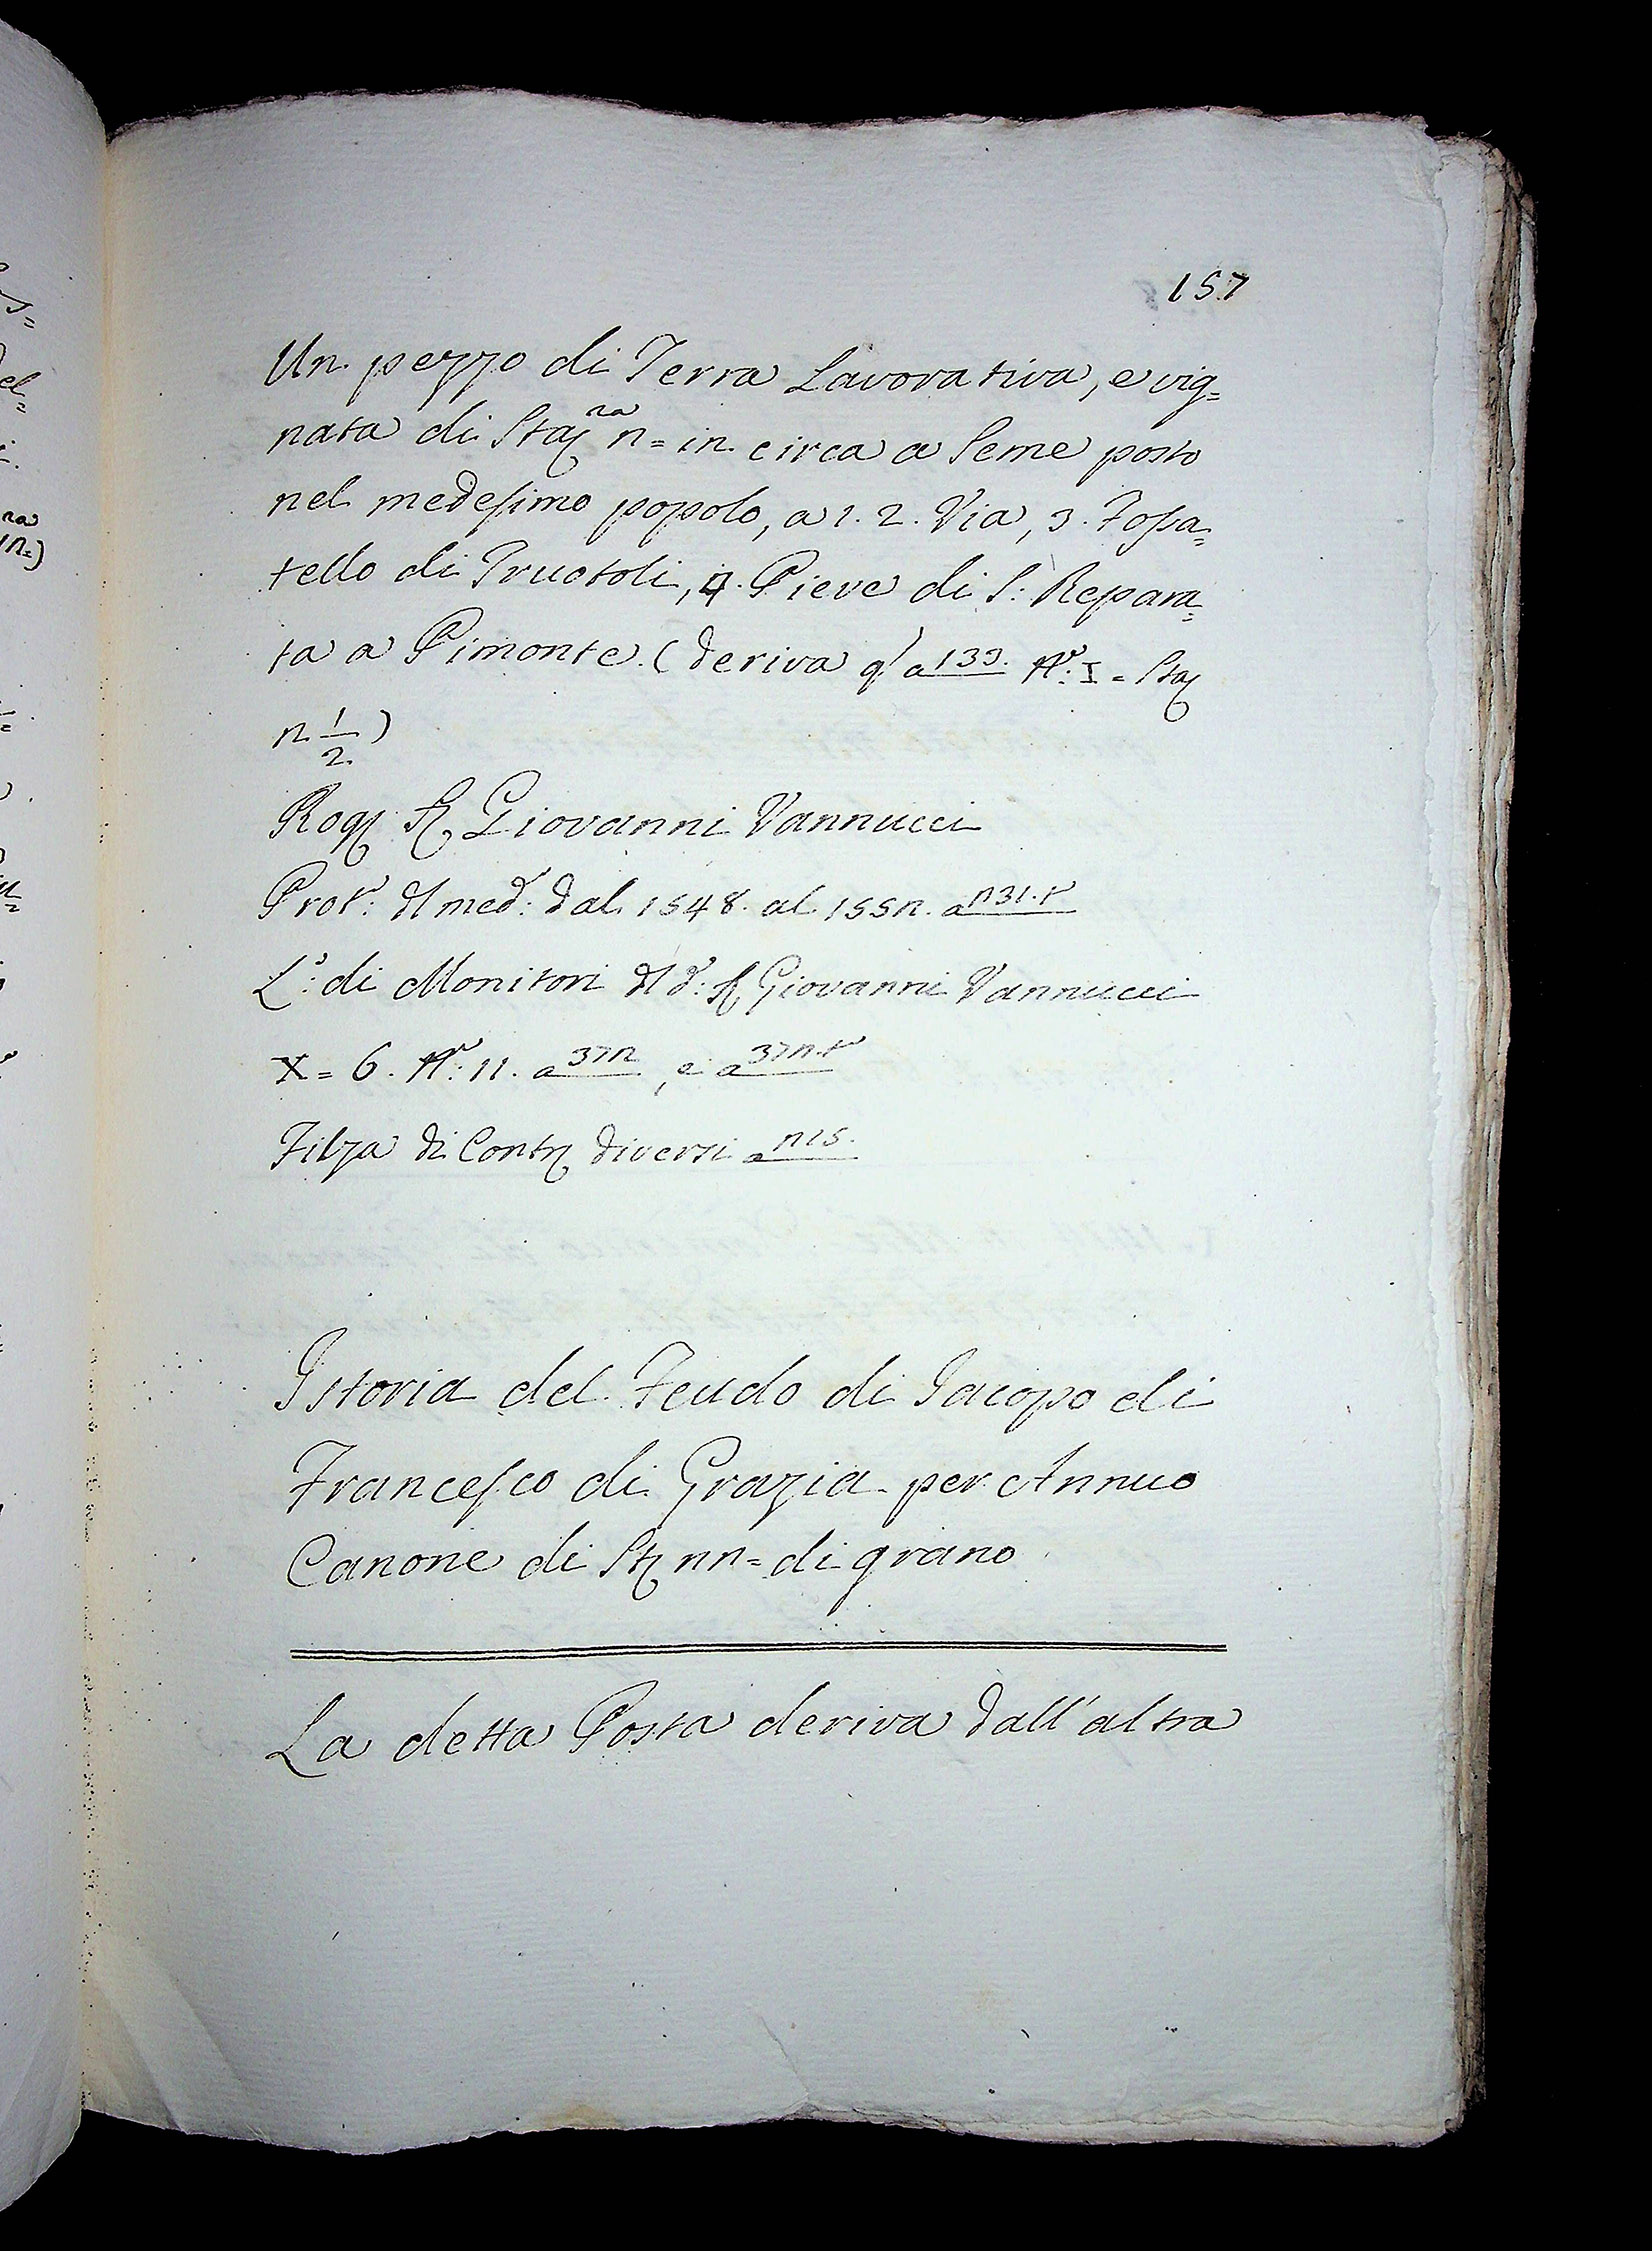 157
Un pezzo di Terra Lavorativa, e vig=
nata di Sta n= in circa a Seme posto
nel medesimo popolo, a 1. 2. Via, 3. Fossa=
tello di Pruotoli, 4. Pieve di S: Repara=
ta a Pimonte. (deriva q! a 133. N.º: I = Sta
n 1/2)
Rog Giovanni Vannucci
Prot: med: dal 1548. al 155n. a n31. t
L.º: di Monitori d: Giovanni Vannucci
X = 6. N.º: 11. a 37n, e a 37n. t
Filza di Cont diversi a n15.
Istoria del Feudo di Iacopo di
Francesco di Grazia per Annuo
Canone di St nn= di grano
La detta Posta deriva dall'altra